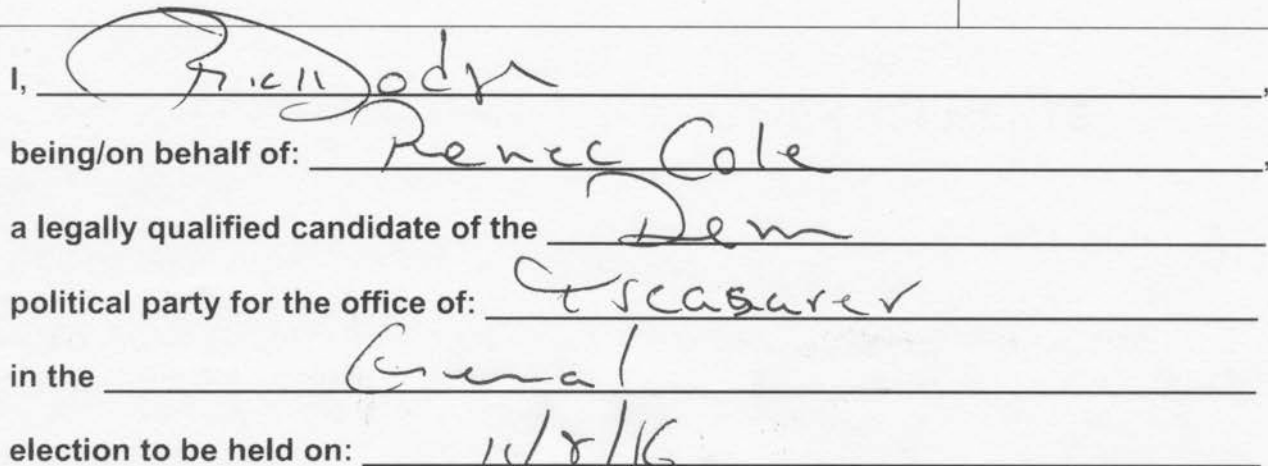 I, Rich ,
being/on behalf of: Renee Cole ,
a legally qualified candidate of the Dem
political party for the office of: Treasurer
in the General
election to be held on: 11/8/16